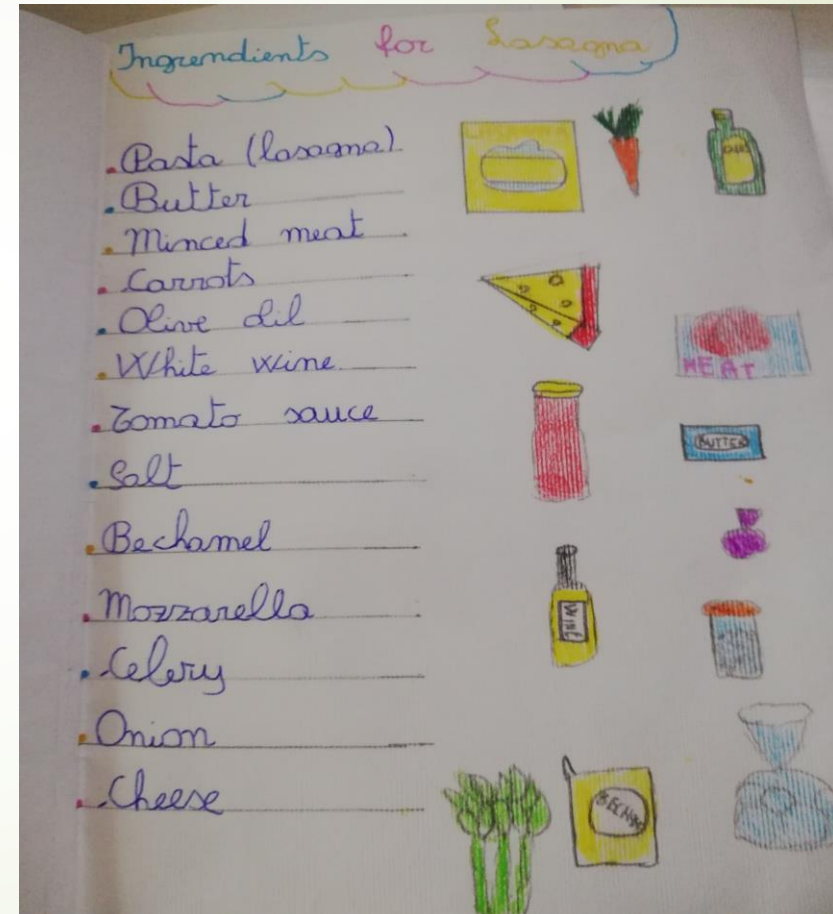 Ingrendients for Lasagna
• Pasta (lasagna)
• Butter
• Minced meat
• Carrots
• Olive Oil
• White wine
• Tomato sauce
• Salt
• Bechamel
• Mozzarella
• Celery
• Onion
• Cheese
MEAT
BUTTER
WINE